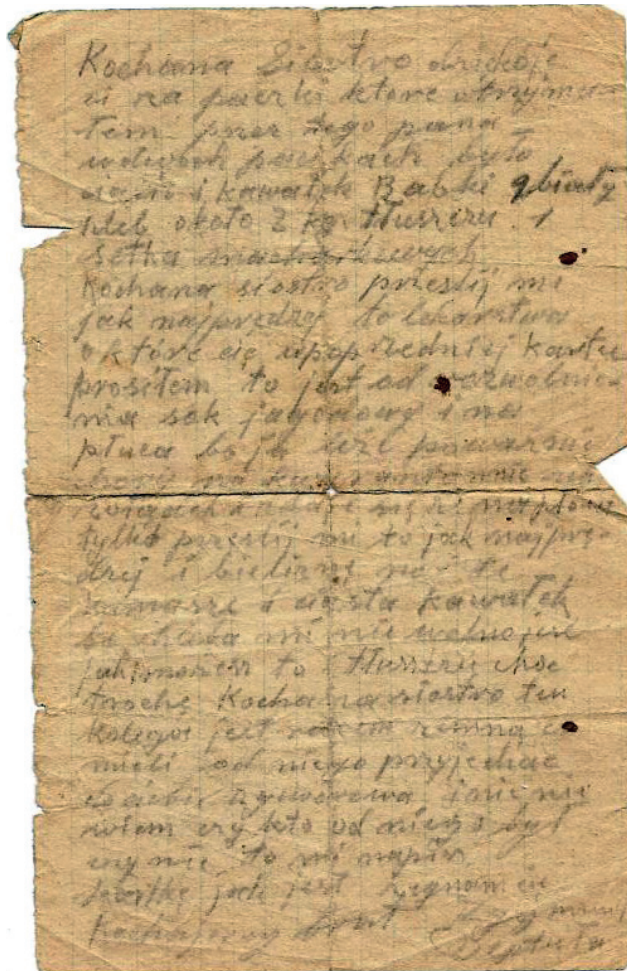 Kochana Siostro dziękoje
ci za paczki ktore otrzyma-
łem przez tego pana
wdwoch paczkach było
i kawałek Babki biały
hleb około 2 kg tłuszczu i
setka
Kochana siostro prześlij mi
jak najprędzej to lekarstwa
o które cię wpoprzedniej kartce
prosiłem to jest od rozwolnie-
nia sok jagodowy i na
płuca bo ja leże poważnie
chory na
i zdaje się że na płuca
tylko prześlij mi to jak najprę-
dzej i bielizne
i ciasta kawałek
bo chleba mi nie wolno jeść
jak możesz to tłuszczu choć
troche Kochana siostro ten
kolega jest razem zemną i
mieli od niego przyjechać
do ciebie i nie
wiem czy kto od niego był
czy nie to mi napisz
kartkę jak jest żegnam cię
kochający brat Zygmunt
Deptuła